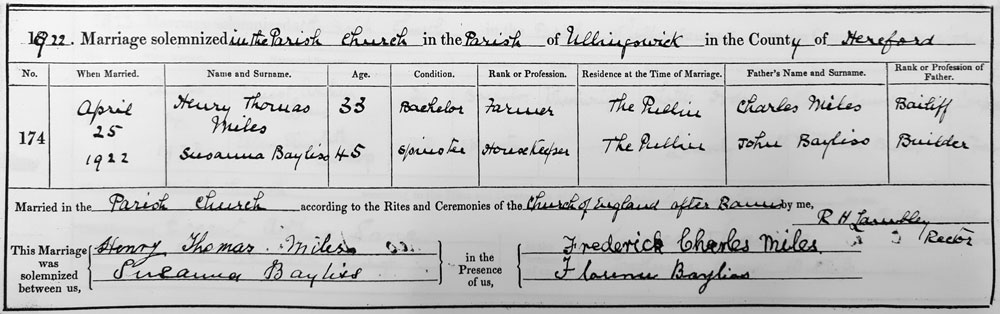 1922. Marriage solemnized in the Parish Church in the Parish of Ullingswick in the County of Hereford
No. When Married. Name and Surname. Age. Condition. Rank or Profession. Residence at the Time of Marriage. Father's Name and Surname. Rank or Profession of Father.
174 April 25 1922
Henry Thomas Miles 33 Bachelor Farmer The Pullin Charles Miles Bailiff
Susanna Bayliss 45 Spinster Housekeeper The Pullin John Bayliss Builder
Married in the Parish Church according to the Rites and Ceremonies of the Church of England after Banns by me,
R H Rector
This Marriage was solemnized between us,
Henry Thomas Miles
Susanna Bayliss
in the Presence of us,
Frederick Charles Miles
Florence Bayliss